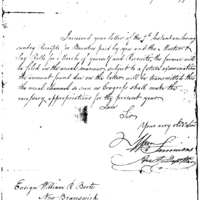 I received your letter of the 7th Instant enclosing
sundry Receipts for Bounties paid by you and a Muster &
Pay Rolls for a March of yourself and Recruits, the former will
be filed in the usual manner subject to a future examination
the amount found due on the latter will be transmitted thro
the usual channel as soon as Congress shall make the
necessary appropriation for the present year
I am
Sir
Your very obd Servt
Wm Simmons
Ensign William R. Boote
New Brunswick